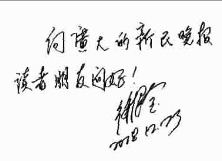 向广大的新民晚报
读者朋友问好!
2018.12.23